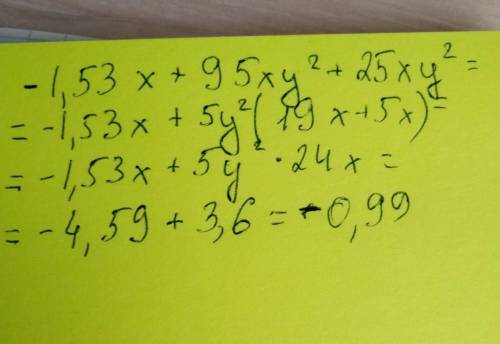 -1,53 x + 95xy² + 25xy² =
= -1,53x + 5y² (19x+5x) =
= -1,53x + 5y² · 24x =
= -4,59 + 3,6 = -0,99